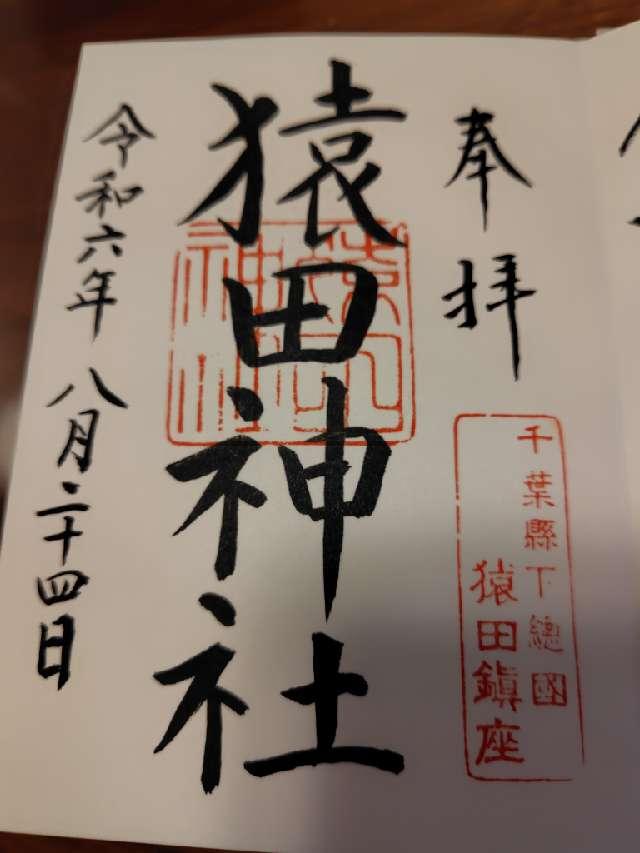 奉拝
千葉縣下總國
猿田鎭座
猿田神社
令和六年 八月二十四日